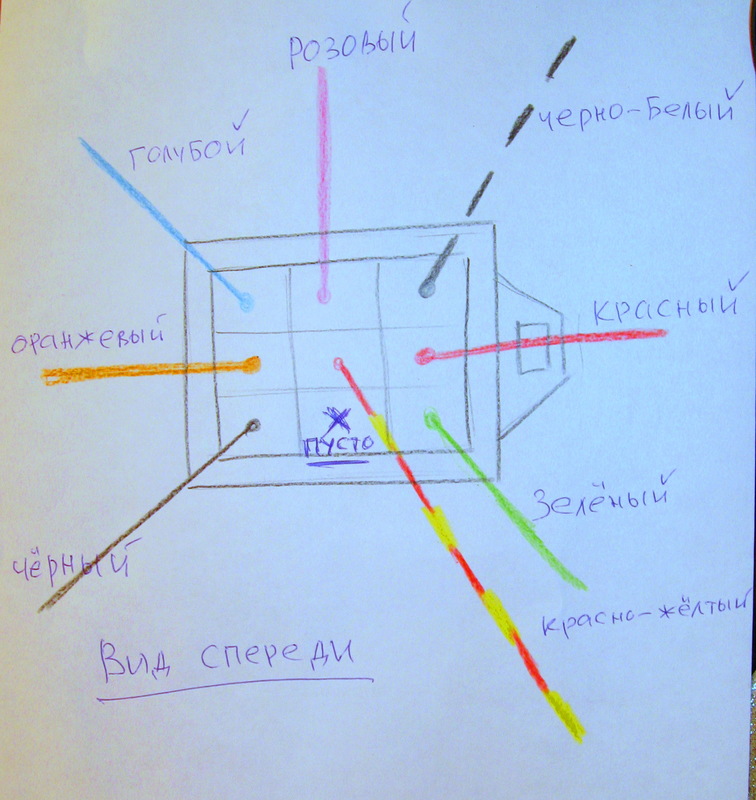 РОЗОВЫЙ
ЧЕРНО-БЕЛЫЙ
ГОЛУБОЙ
КРАСНЫЙ
ОРАНЖЕВЫЙ
ПУСТО
ЗЕЛЁНЫЙ
ЧЁРНЫЙ
КРАСНО-ЖЁЛТЫЙ
ВИД СПЕРЕДИ